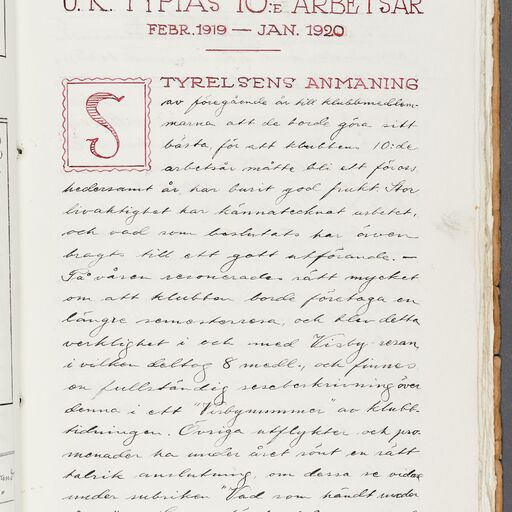 U. K. TYPIAS 10:E ARBETSÅR
FEBR. 1919 — JAN. 1920
STYRELSENS ANMANING
av föregående år till klubbmedlem-
marna att de borde göra sitt
bästa, för att klubbens 10:de
arbetsår måtte bli ett för oss
hedersamt år har burit god frukt. Stor
livaktighet har kännetecknat arbetet,
och vad som beslutats har även
bragts till ett gott utförande. —
På våren resonerades rätt mycket
om att klubben borde företaga en
längre semesterresa, och blev detta
verklighet i och med Visby-resan,
i vilken deltog 8 medl., och finnes
en fullständig resebeskrivning över
denna i ett "Visbynummer" av klubb-
tidningen. Övriga utflykter och pro-
menader ha under året rönt en rätt
talrik anslutning, om dessa se vidare
under rubriken "Vad som händt under